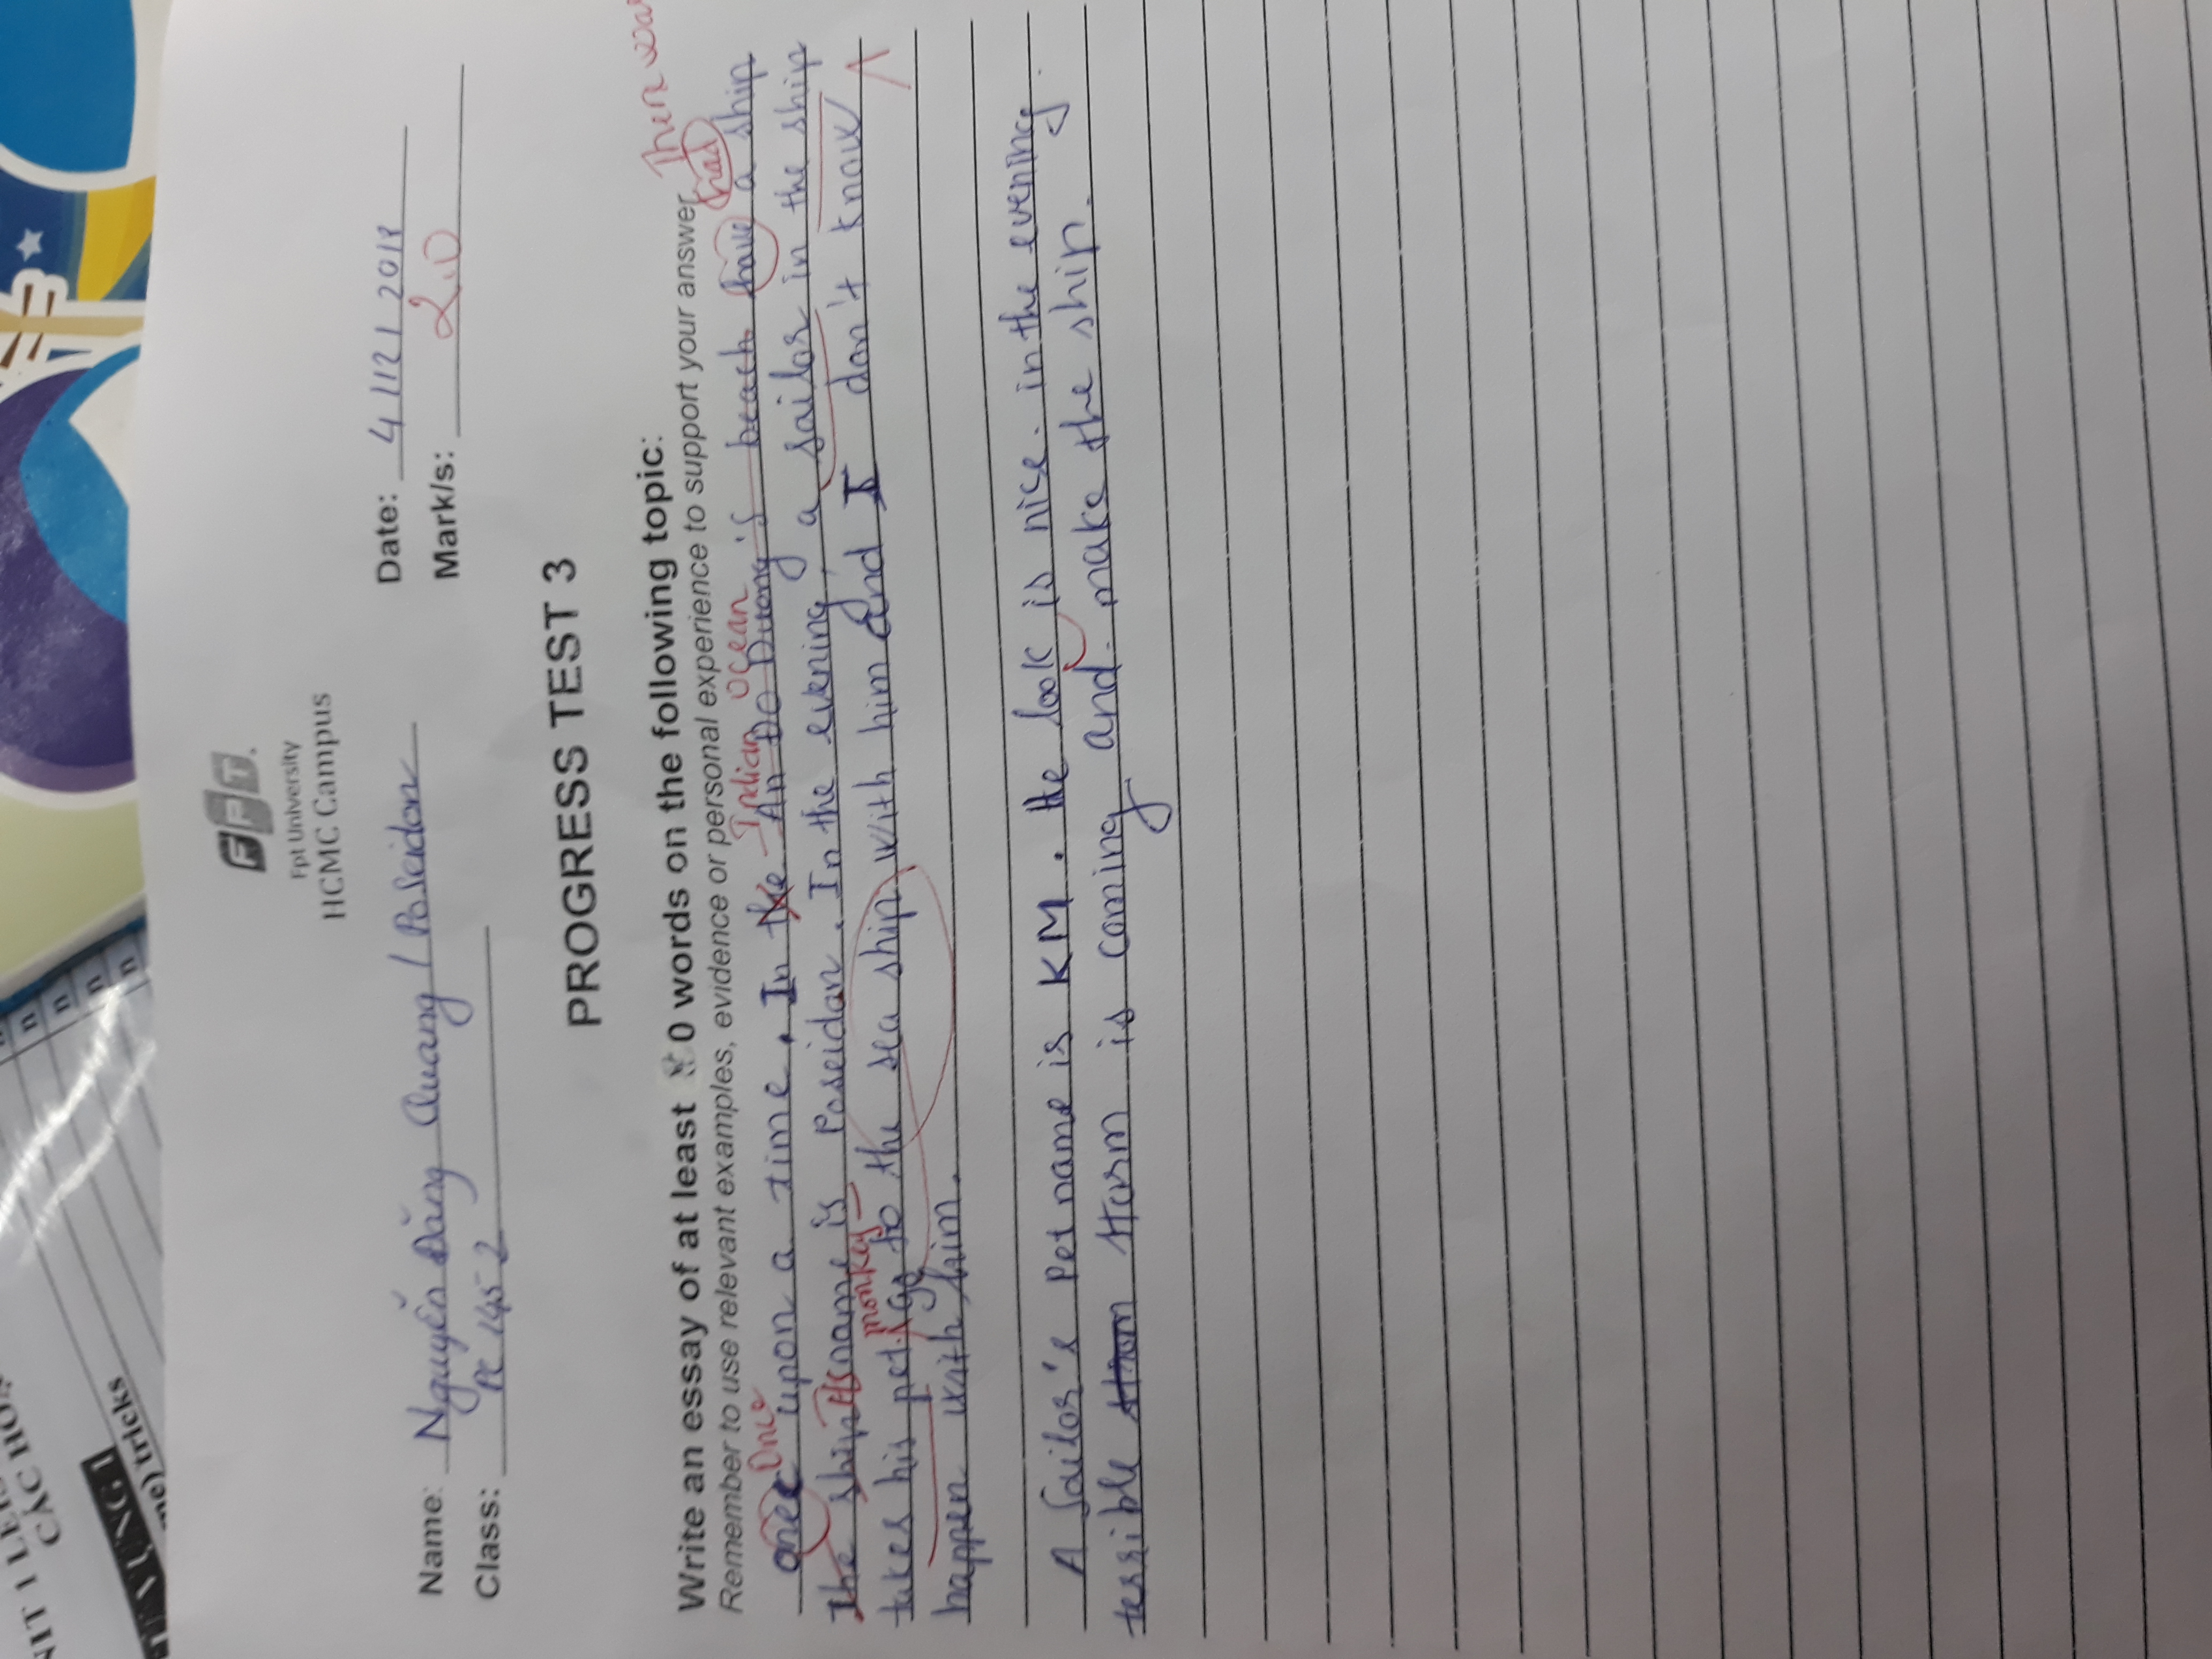 CÁC HO
VỰNG 1
tricks
n
n
n
n
FPT
Fpt University
HCMC Campus
Name: Nguyễn Đăng Quang / Poseidon
Date: 4/12/2018
Class: PC 1452
Mark/s: 2.0
PROGRESS TEST 3
Write an essay of at least 0 words on the following topic:
Remember to use relevant examples, evidence or personal experience to support your answer
There was
Once Indian ocean had
upon a time. In the Ấn Độ Dương's beach have a ship
The ship Its name is Poseidon. In the evening, a sailor in the ship
monkey
takes his pet go to the sea ship with him and I don't know
happen with him.
A Sailor's Pet name is KM. He look is nice. in the evening.
terrible storm is coming and make the ship.